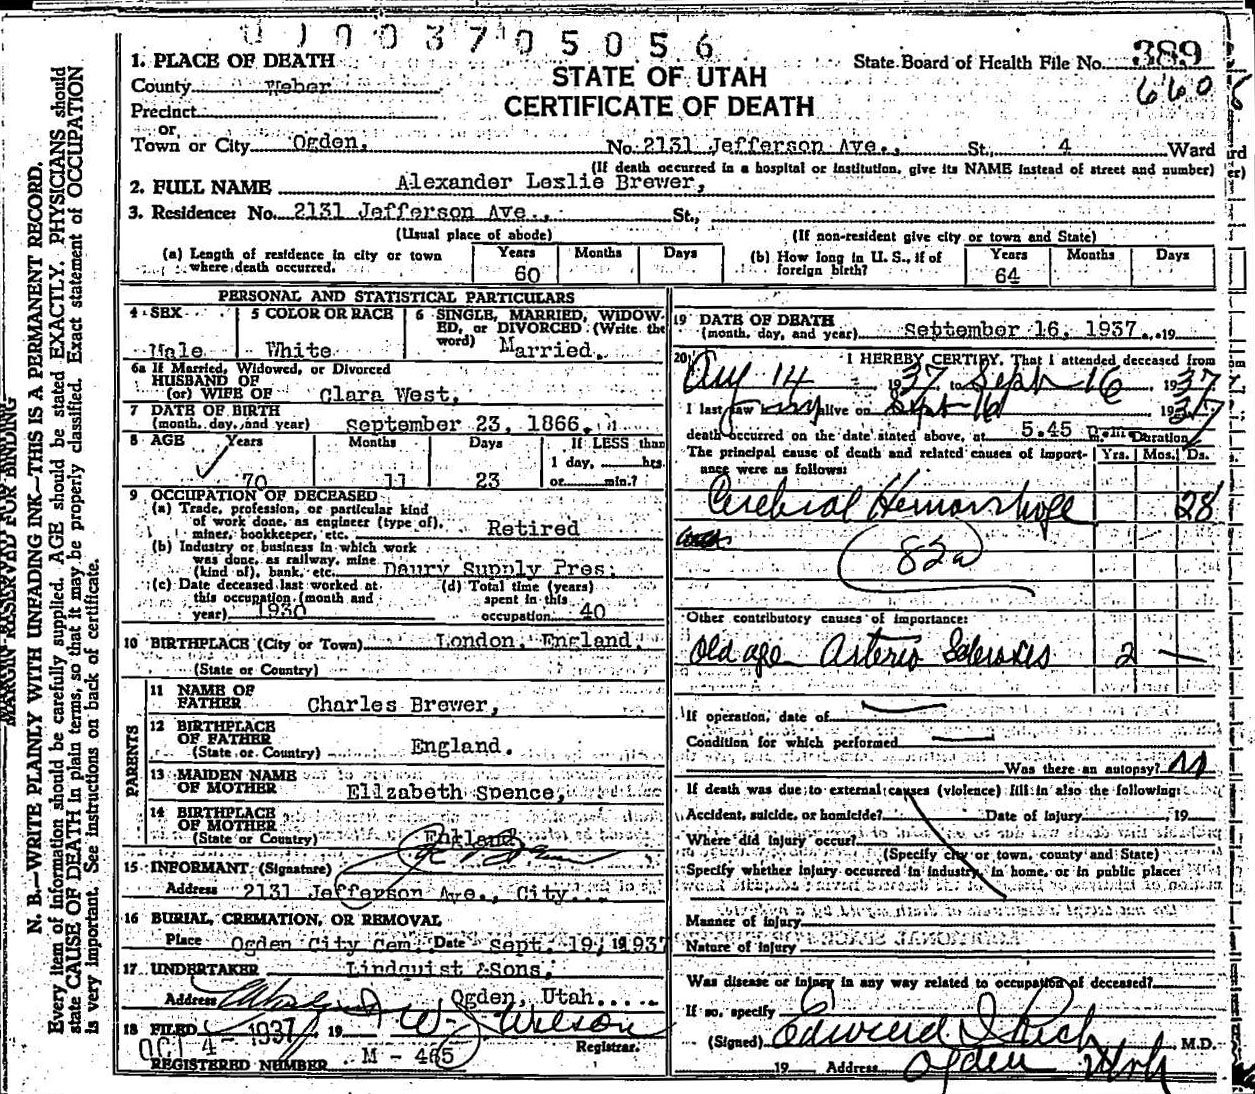 010037 05056
1. PLACE OF DEATH
STATE OF UTAH
CERTIFICATE OF DEATH
State Board of Health File No. 389
660
County Weber
Precinct
or
Town or City Ogden. No. 2131 Jefferson Ave., St., 4 Ward
(If death occurred in a hospital or institution, give its NAME instead of street and number)
2. FULL NAME Alexander Leslie Brewer,
3. Residence: No. 2131 Jefferson Ave., St.,
(Usual place of abode) (If non-resident give city or town and State)
(a) Length of residence in city or town where death occurred. Years 60 Months Days
(b) How long in U. S., if of foreign birth? Years 64 Months Days
PERSONAL AND STATISTICAL PARTICULARS
4 SEX Male
5 COLOR OR RACE White
6 SINGLE, MARRIED, WIDOWED, or DIVORCED (Write the word) Married.
6a If Married, Widowed, or Divorced
HUSBAND OF
(or) WIFE OF Clara West.
7 DATE OF BIRTH
(month, day, and year) September 23, 1866.
8 AGE Years 70 Months 11 Days 23 If LESS than 1 day, hrs. or min.?
9 OCCUPATION OF DECEASED
(a) Trade, profession, or particular kind
of work done, as engineer (type of),
miner, bookkeeper, etc. Retired
(b) Industry or business in which work
was done, as railway, mine
(kind of), bank, etc. Daury Supply Pres.
(c) Date deceased last worked at
this occupation (month and
year) 1930
(d) Total time (years)
spent in this
occupation 40
10 BIRTHPLACE (City or Town) London, England.
(State or Country)
PARENTS
11 NAME OF
FATHER Charles Brewer,
12 BIRTHPLACE
OF FATHER
(State or Country) England.
13 MAIDEN NAME
OF MOTHER Elizabeth Spence,
14 BIRTHPLACE
OF MOTHER
(State or Country) England
15 INFORMANT (Signature)
Address 2131 Jefferson Ave., City
16 BURIAL, CREMATION, OR REMOVAL
Place Ogden City Cem. Date Sept. 19, 1937
17 UNDERTAKER Lindquist &Sons,
Address Ogden, Utah.
18 FILED OCT 4 - 1937 19 W. Wilson
Registrar.
REGISTERED NUMBER M - 465
19 DATE OF DEATH
(month, day, and year) September 16, 1937. 19
20 I HEREBY CERTIFY, That I attended deceased from
Aug 14 1937 to Sept 16, 1937
I last saw him alive on Sept 16 1937
death occurred on the date stated above, at 5.45 p.m. Duration
The principal cause of death and related causes of importance were as follows: Yrs. Mos. Ds.
Cerebral Hemorrhage 28
82a
Other contributory causes of importance:
Old age Asterio Sclerosis 2 —
If operation, date of —
Condition for which performed —
Was there an autopsy?
If death was due to external causes (violence) fill in also the following:
Accident, suicide, or homicide? Date of injury 19
Where did injury occur?
(Specify city or town, county and State)
Specify whether injury occurred in industry, in home, or in public place:
Manner of injury
Nature of injury
Was disease or injury in any way related to occupation of deceased?
If so, specify
(Signed) Edward I Rich M.D.
19 Address Ogden Utah
MARGIN RESERVED FOR BINDING
N. B.—WRITE PLAINLY WITH UNFADING INK—THIS IS A PERMANENT RECORD.
Every item of information should be carefully supplied. AGE should be stated EXACTLY. PHYSICIANS should
state CAUSE OF DEATH in plain terms, so that it may be properly classified. Exact statement of OCCUPATION
is very important. See instructions on back of certificate.